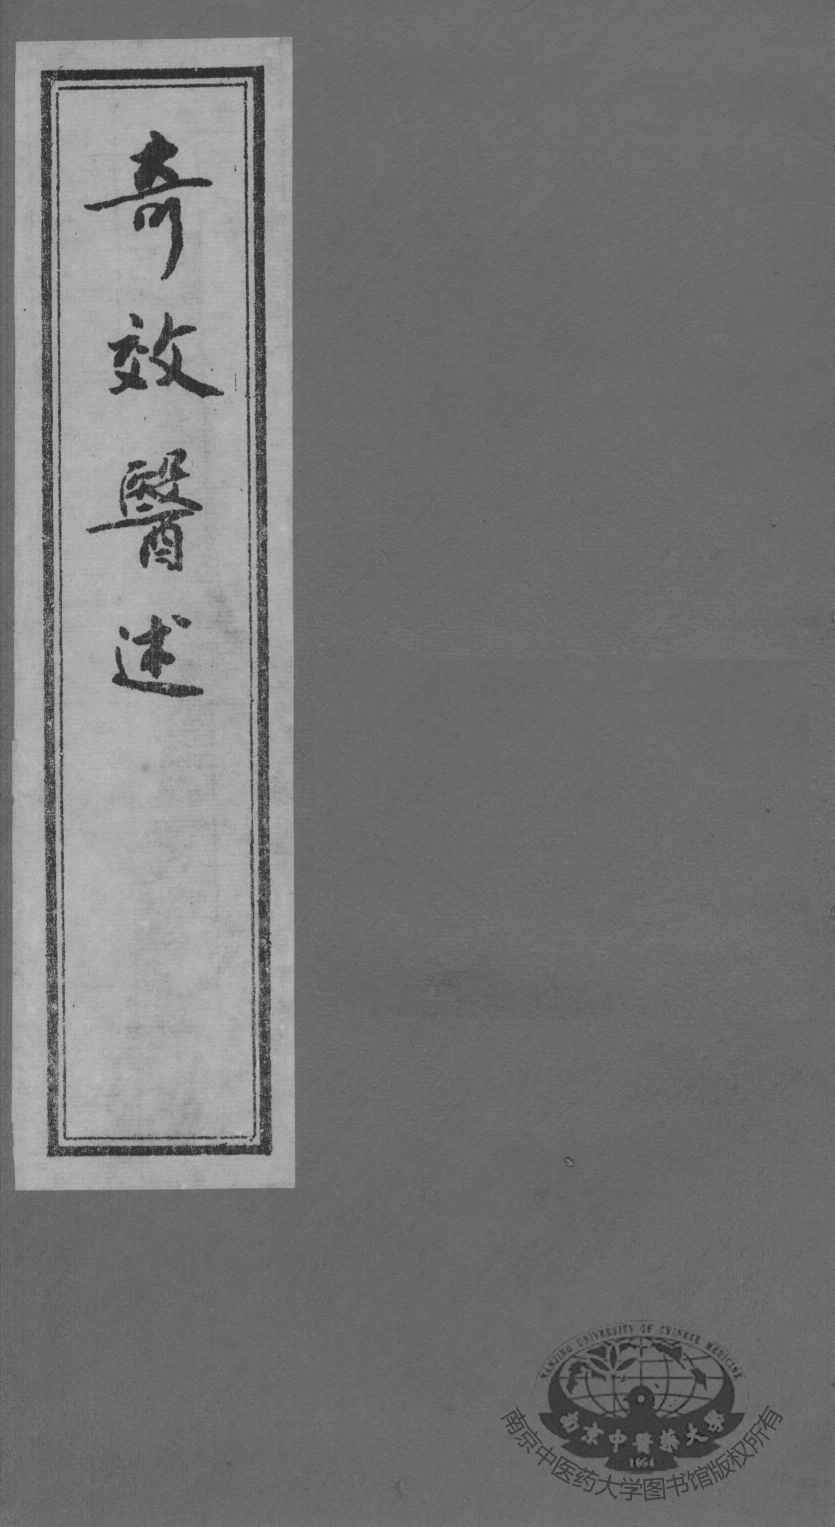 奇效醫述
NANJING UNIVERSITY OF CHINESE MEDICINE
南京中醫藥大學
1954
南京中医药大学图书馆版权所有